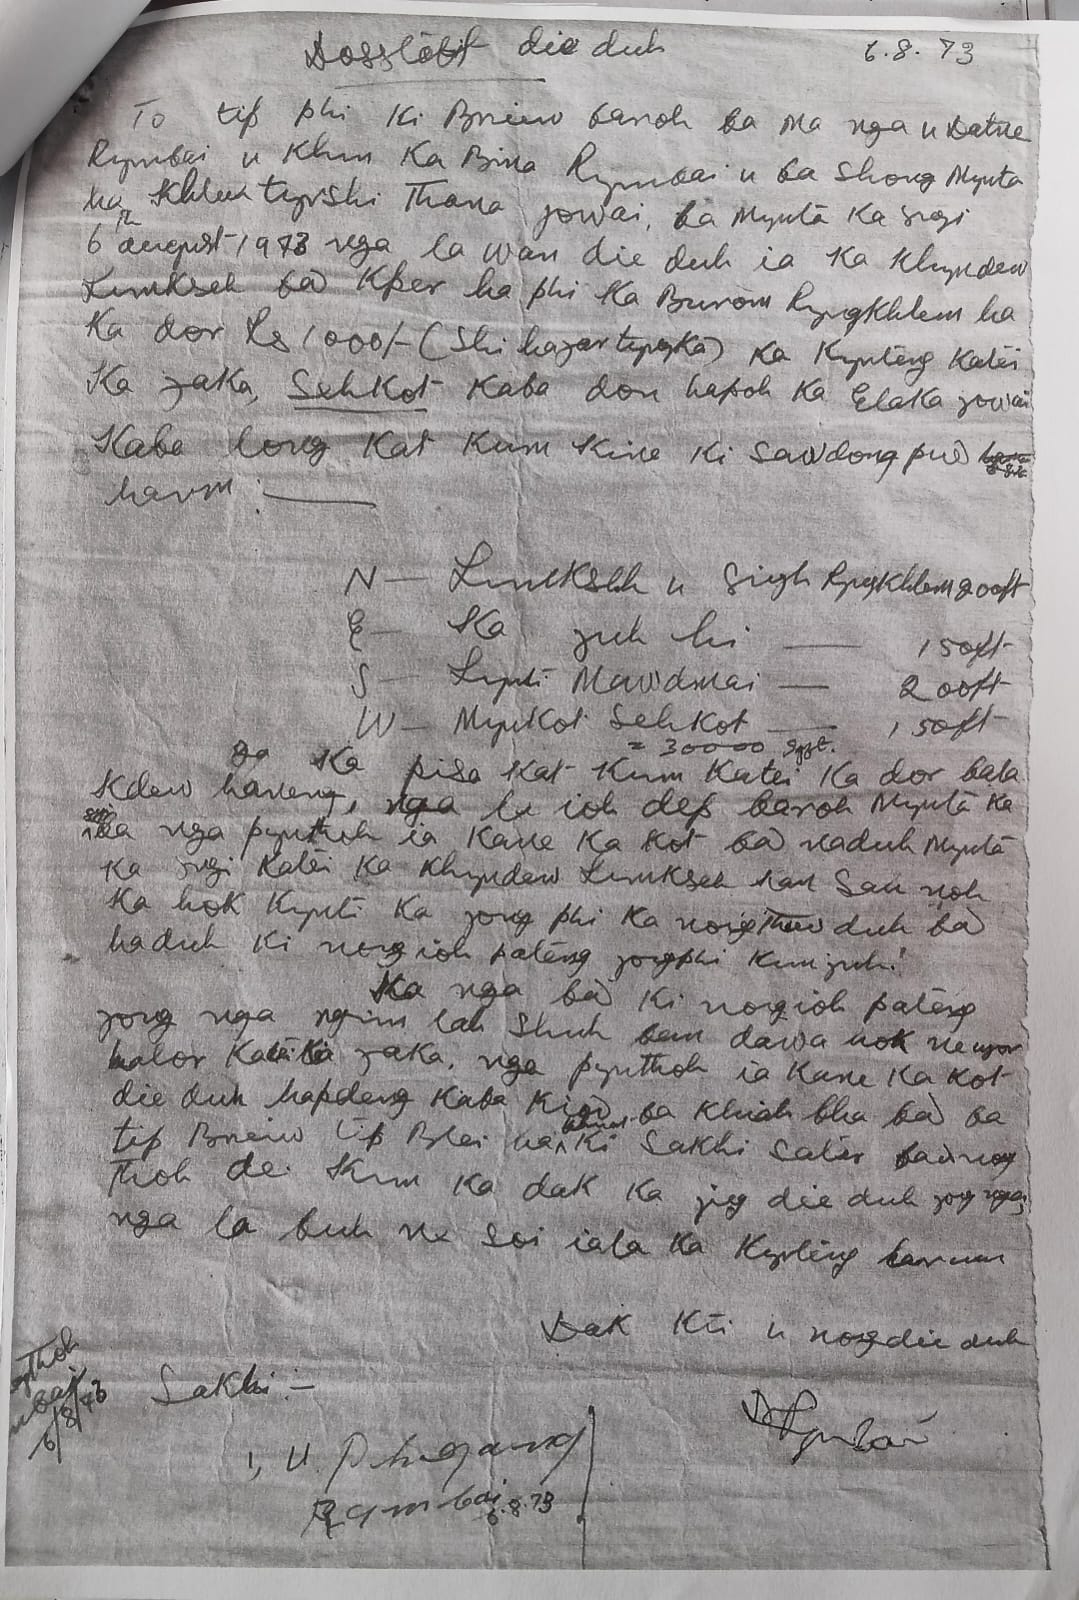 Dosslobit die duh 6.8.73
To tip phi Ki Briew baroh ba ma nga u Datne
Rymbai u Khun Ka Bina Rymbai u ba shong Mynta
ha Khliehtyrshi Thana Jowai, ba Mynta Ka sngi
6th august 1973 nga la wan die duh ia Ka Khyndew
Lumkseh bad Kper ha phi Ka Burom Ryngkhlem ha
Ka dor Rs 1000/- (Shi hajar tyngka) Ka Kyrteng Katei
Ka jaka, Sehkot Kaba don hapoh Ka Elaka jowai
Kaba long Kat Kum Kine Ki sawdong pud
harum :—
N — Lumkseh u Singh Ryngkhlem 200ft
E — Ka juh hi — 150ft
S — Lynti Mawdmai — 200ft
W — Mynkot Sehkot — 150ft
= 30000 sqft.
Ka pisa Kat Kum Katei Ka dor bala
Kdew haneng, nga la ioh dep baroh Mynta Ka
sngi ba nga pynthoh ia Kane Ka Kot ba naduh Mynta
Ka sngi Katei Ka Khyndew Lumkseh kan san noh
Ka hok Kynti Ka jong phi Ka nongthied duh bad
haduh Ki nongioh pateng jongphi Kumjuh!
Ma nga bad Ki nongioh pateng
jong nga ngim lah Shuh ban dawa hok
halor Katei Ka jaka. nga pynthoh ia Kane Ka Kot
die duh hapdeng Kaba ba Khiah bha bad ba
tip Briew tip Blei ha Khmat Ki Sakhi
Thoh de. Kum Ka dak Ka jing die duh jong nga,
nga la buh soi iala Ka Kyrteng harum
Dak Kti u nongdie duh
Sakhi :-
1, U. Phugang
Rymbai
6.8.73
6/8/73